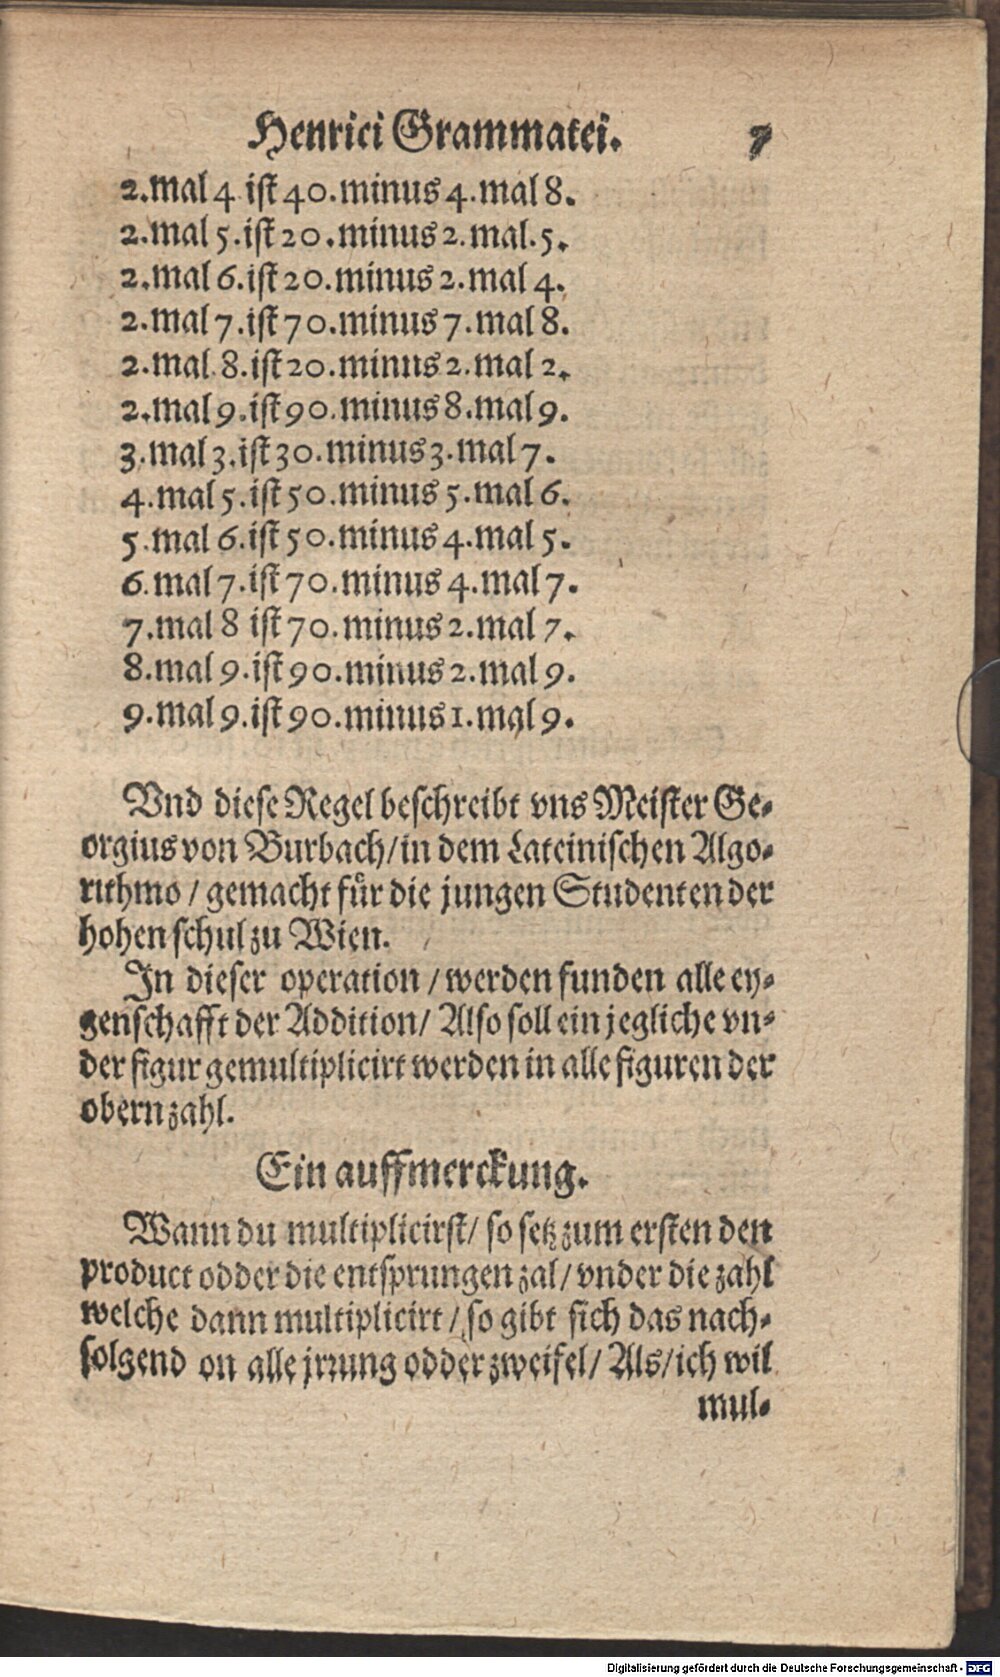 Henrici Grammatei. 7
2.mal 4 ist 40.minus 4.mal 8.
2.mal 5.ist 20.minus 2.mal.5.
2.mal 6.ist 20.minus 2.mal 4.
2.mal 7.ist 70.minus 7.mal 8.
2.mal.8.ist 20.minus 2.mal 2.
2.mal 9.ist 90.minus 8.mal 9.
3.mal 3.ist 30.minus 3.mal 7.
4.mal 5.ist 50.minus 5.mal 6.
5.mal 6.ist 50.minus 4.mal 5.
6.mal 7.ist 70.minus 4.mal 7.
7.mal 8 ist 70.minus 2.mal 7.
8.mal 9.ist 90.minus 2.mal 9.
9.mal 9.ist 90.minus 1.mal 9.
Vnd diese Regel beschreibt vns Meister Ge-
orgius von Burbach/in dem Lateinischen Algo-
rithmo / gemacht fůr die jungen Studenten der
hohen schul zu Wien.
In dieser operation / werden funden alle ey-
genschafft der Addition/ Also soll ein jegliche vn-
der figur gemultiplicirt werden in alle figuren der
obern zahl.
Ein auffmerckung.
Wann du multiplicirst/ so setz zum ersten den
product odder die entsprungen zal/ vnder die zahl
welche dann multiplicirt / so gibt sich das nach-
folgend on alle jrrung odder zweifel/ Als/ich wil
mul-
Digitalisierung gefördert durch die Deutsche Forschungsgemeinschaft - DFG